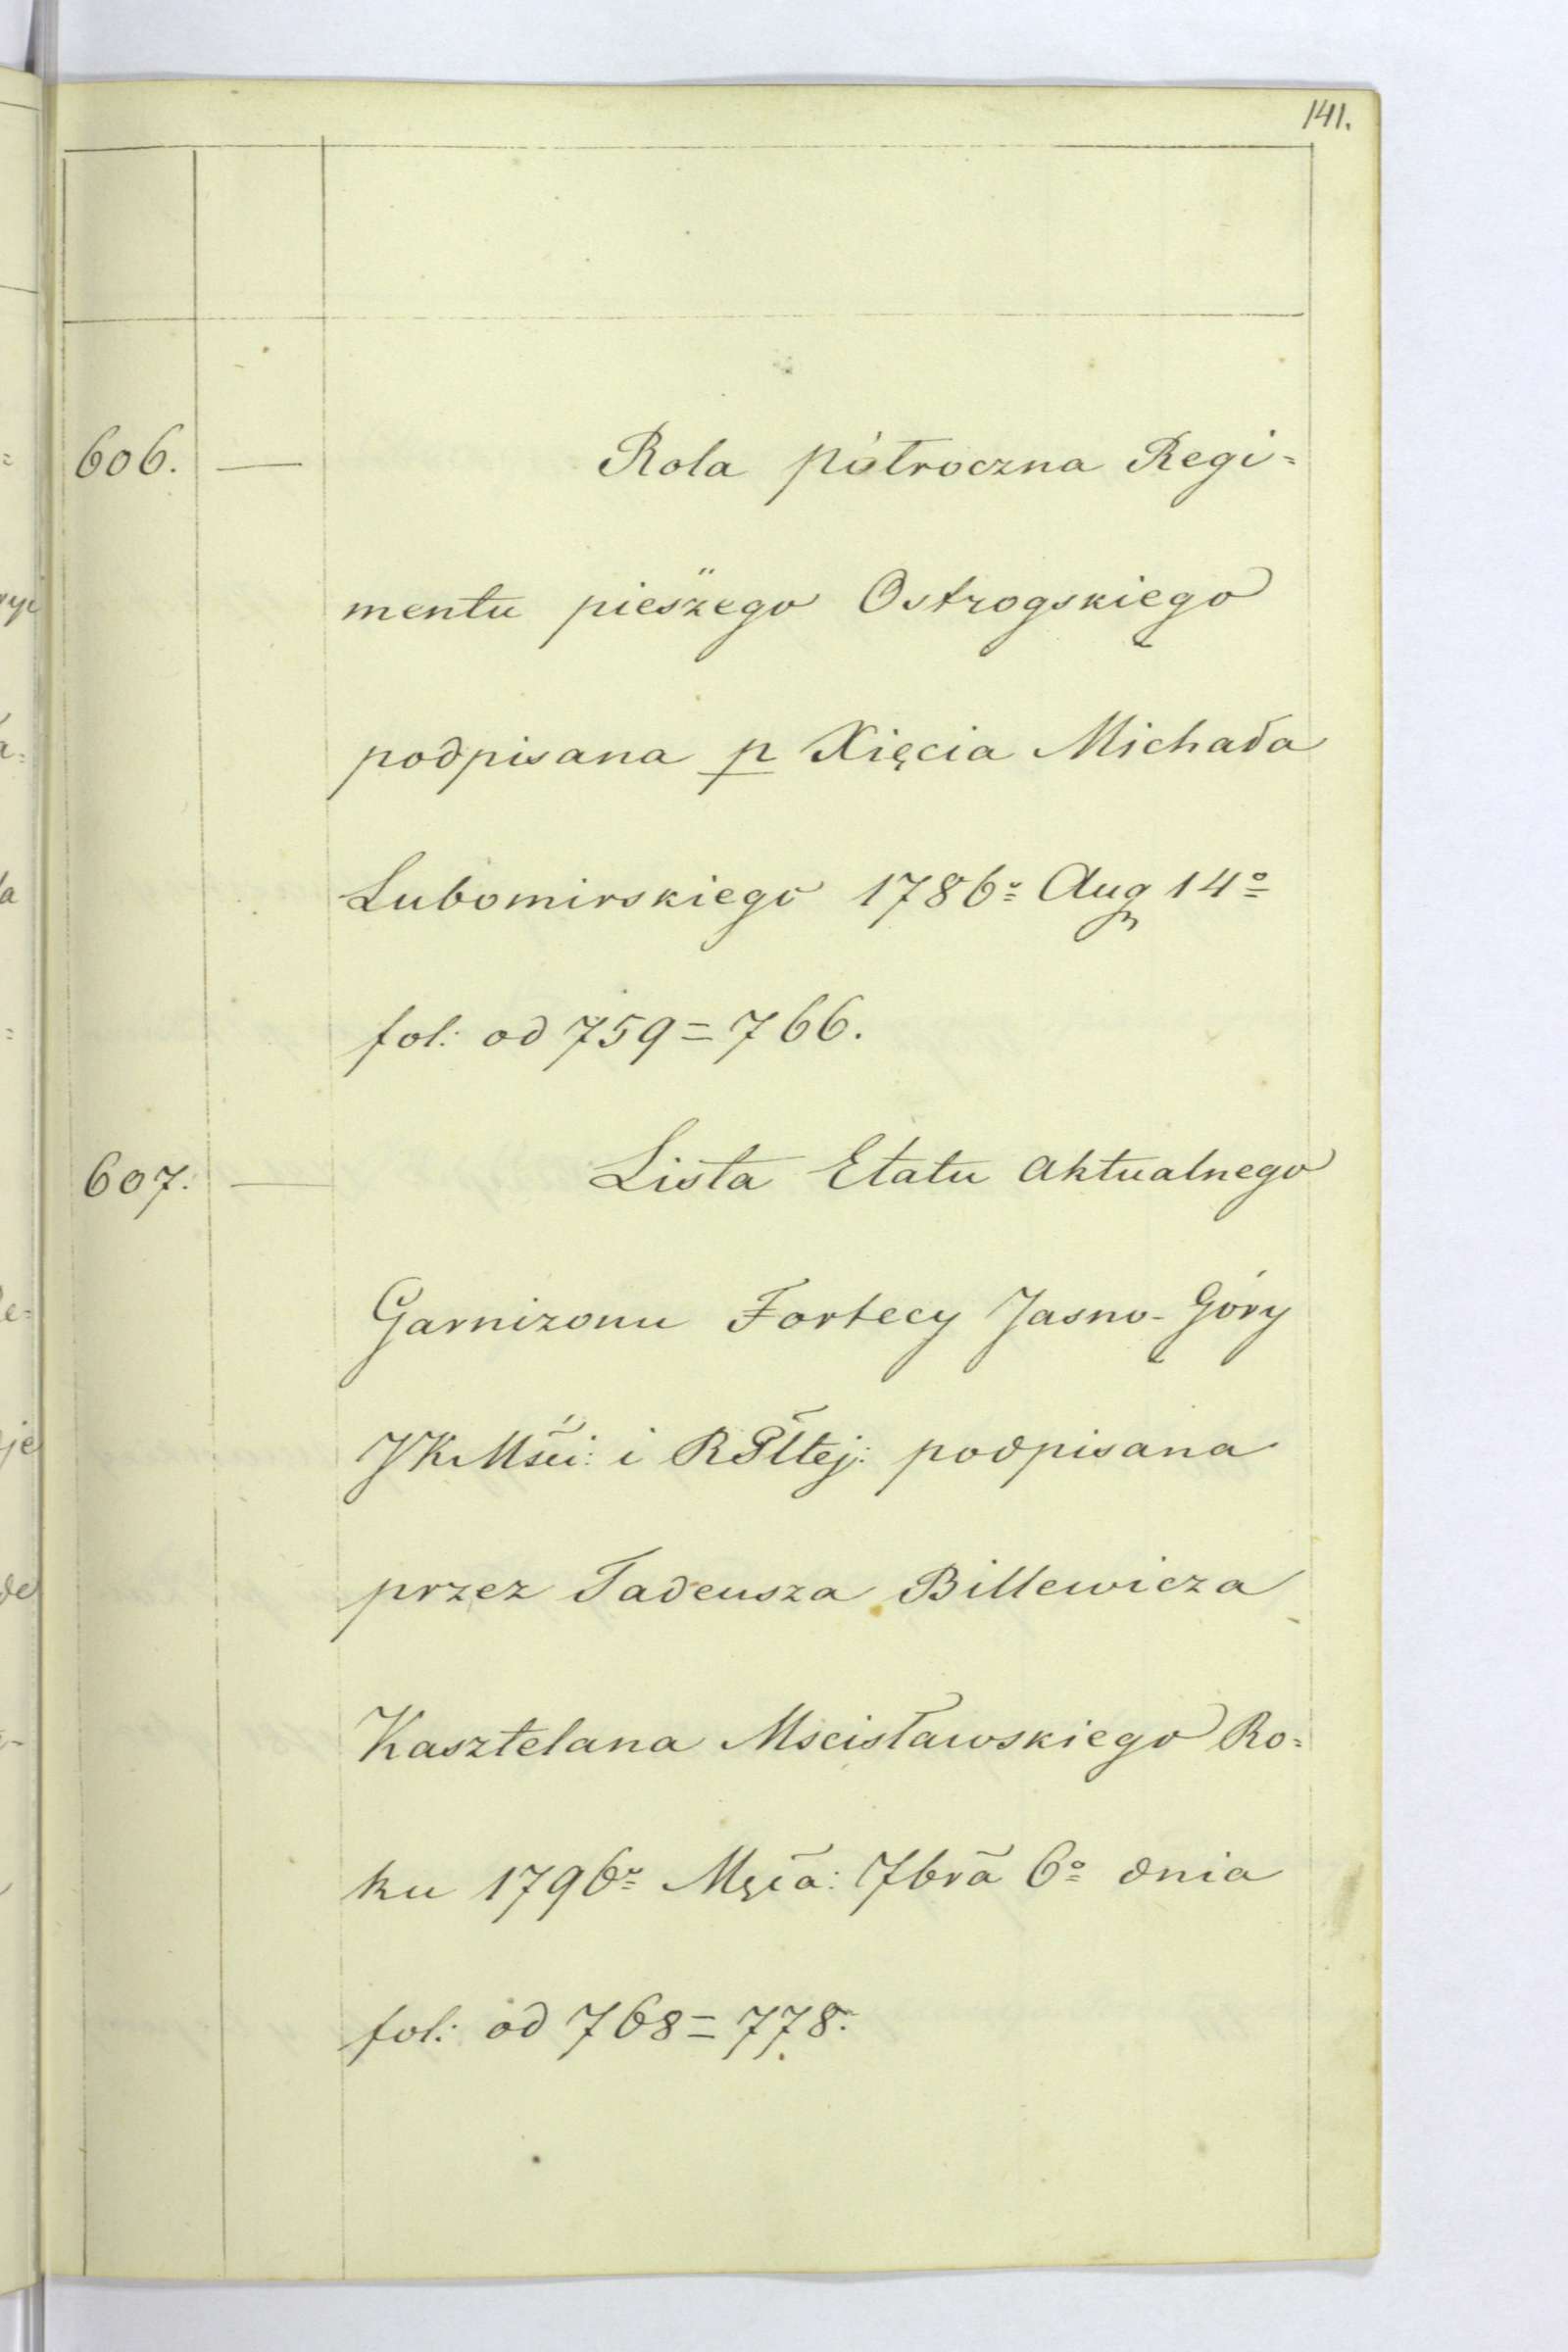 141.
606. — Rola półroczna Regi=
mentu pieszego Ostrogskiego
podpisana p Xięcia Michała
Lubomirskiego 1786o Aug 14o
fol: od 759=766.
607. — Lista Etatu aktualnego
Garnizonu Fortecy Jasno-Góry
JKMści: i RPltej: podpisana
przez Tadeusza Billewicza
Kasztelana Mscisławskiego Ro=
ku 1796o Mşca: 7bra 6o dnia
fol: od 768=778.